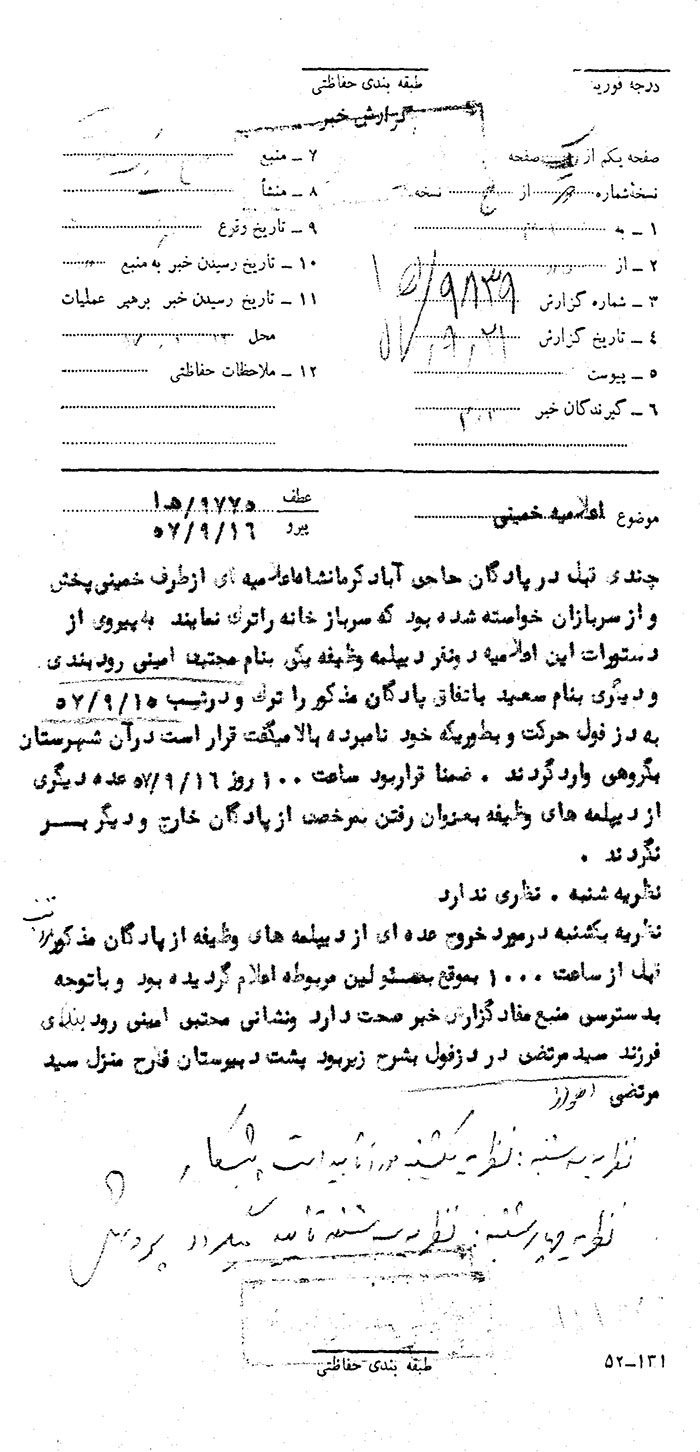 درجه فوریت
طبقه بندی حفاظتی
گزارش خبر
صفحه یکم از یک صفحه
نسخه شماره از نسخه
۱ ـ به
۲ ـ از
۳ ـ شماره گزارش ۹۸۳۹/ ه‍ ۱
۴ ـ تاریخ گزارش ۵۷/۹/۲۱
۵ ـ پیوست
۶ ـ گیرندگان خبر
۷ ـ منبع
۸ ـ منشأ
۹ ـ تاریخ وقوع
۱۰ ـ تاریخ رسیدن خبر به منبع
۱۱ ـ تاریخ رسیدن خبر برهبر عملیات
محل
۱۲ ـ ملاحظات حفاظتی
موضوع اعلامیه خمینی
عطف ۹۷۷۵/ه‍ ۱
پیرو ۵۷/۹/۱۶
چندی قبل در پادگان حاجی آباد کرمانشاه اعلامیه ای از طرف خمینی پخش
و از سربازان خواسته شده بود که سرباز خانه را ترک نمایند به پیروی از
دستورات این اعلامیه دو نفر دیپلمه وظیفه یکی بنام مجتبی امینی رودبندی
و دیگری بنام سعید باتفاق پادگان مذکور را ترک و در شب ۵۷/۹/۱۵
به دزفول حرکت و بطوریکه خود نامبرده بالا میگفت قرار است در آن شهرستان
بگروهی وارد گردند . ضمنا قرار بود ساعت ۱۰۰ روز ۵۷/۹/۱۶ عده دیگری
از دیپلمه های وظیفه بعنوان رفتن بمرخصی از پادگان خارج و دیگر بــــر
نگردند .
نظریه شنبه . نظری ندارد
نظریه یکشنبه در مورد خروج عده ای از دیپلمه های وظیفه از پادگان مذکور
قبل از ساعت ۱۰۰۰ بموقع بمسئولین مربوطه اعلام گردیده بود و با توجه
بدسترسی منبع مفاد گزارش خبر صحت دارد ونشانی مجتبی امینی رودبندی
فرزند سید مرتضی در دزفول بشرح زیر بود پشت دبیرستان فلاح منزل سید
مرتضی
نظریه سه شنبه : نظریه یکشنبه مورد تأیید است
نظریه چهارشنبه : نظریه سه شنبه تأیید میگردد
طبقه بندی حفاظتی
۱۳۱ـ۵۲